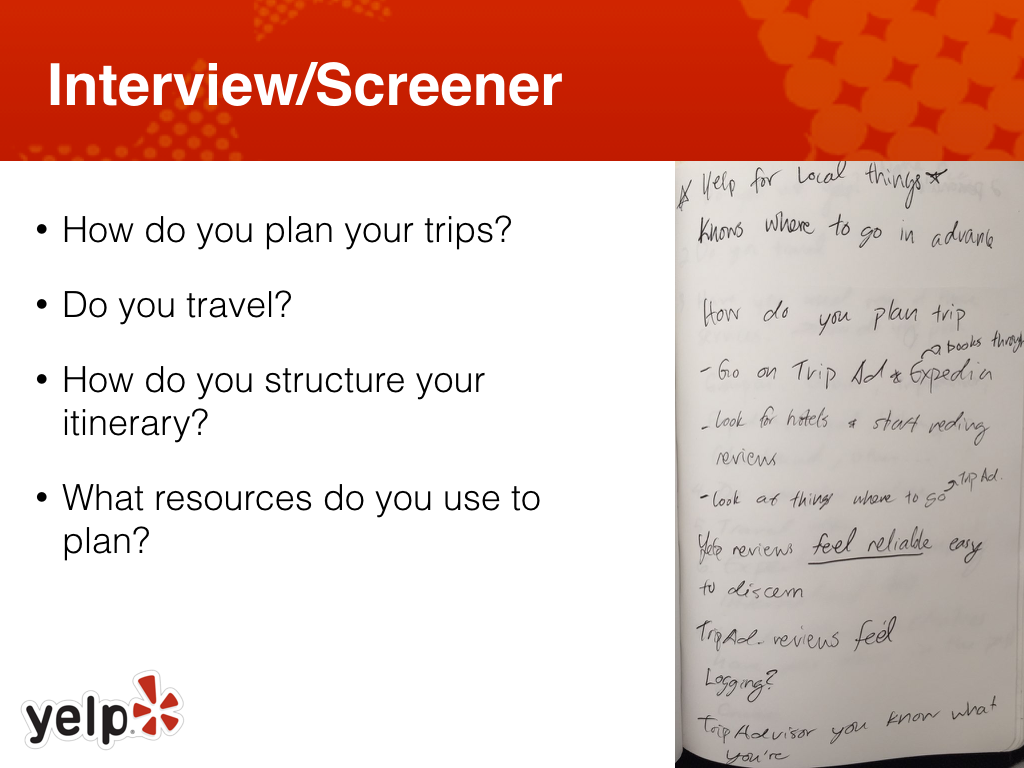 Interview/Screener
• How do you plan your trips?
• Do you travel?
• How do you structure your
itinerary?
• What resources do you use to
plan?
yelp
* Yelp for Local things *
Knows where to go in advance
How do you plan trip
→ books through
- Go on Trip Ad & Expedia
- Look for hotels & start reding
reviews
→ Trip Ad.
- Look at things where to go
Yelp reviews feel reliable easy
to discern
TripAd. reviews feel
Logging?
TripAdvisor you know what
you're